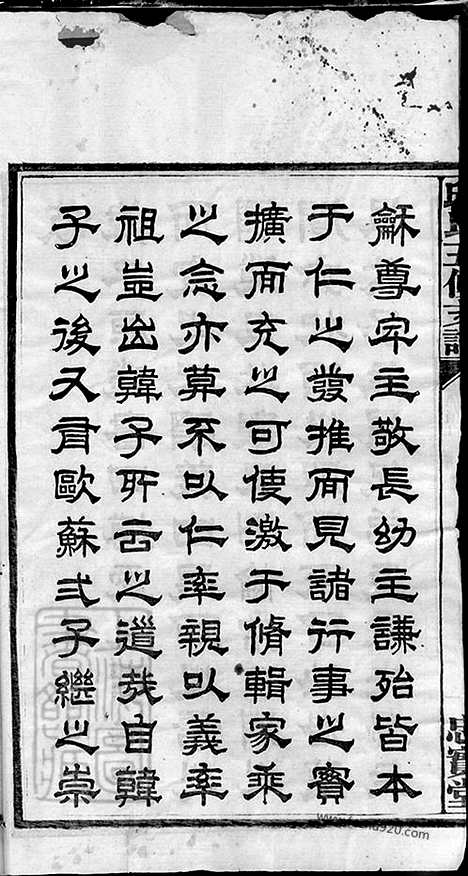 龢尊卑主敬長幼主謙殆皆本
于仁之發推而見諸行事之實
擴而充之可使激于脩輯家乘
之念亦莫不以仁率親以義率
祖豈出韓子所云之道哉自韓
子之後又有歐蘇弍子繼之崇
五修支譜
思實堂